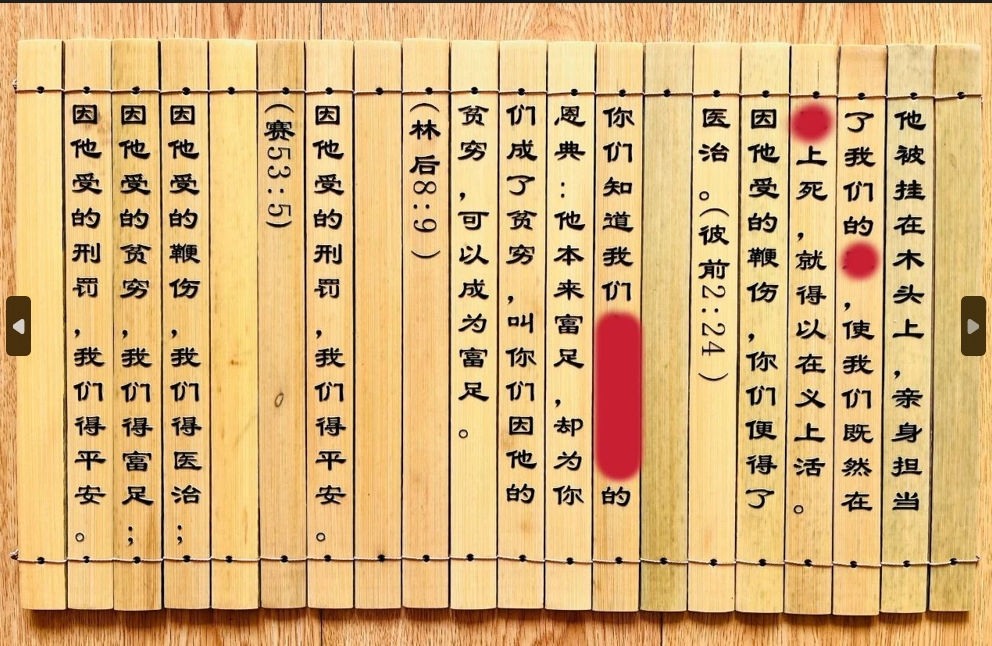 他被挂在木头上，亲身担当
了我们的，使我们既然在
上死，就得以在义上活。
因他受的鞭伤，你们便得了
医治。(彼前2:24)
你们知道我们的
恩典：他本来富足，却为你
们成了贫穷，叫你们因他的
贫穷，可以成为富足。
(林后8:9)
因他受的刑罚，我们得平安。
(赛53:5)
因他受的鞭伤，我们得医治；
因他受的贫穷，我们得富足；
因他受的刑罚，我们得平安。